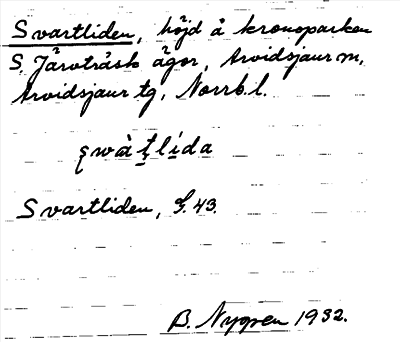 Svartliden, höjd å kronoparken
S. Järvträsk ägor, Arvidsjaur m,
Arvidsjaur tg, Norrb. l.
Svartliden, G. 43.
B. Nygren 1932.